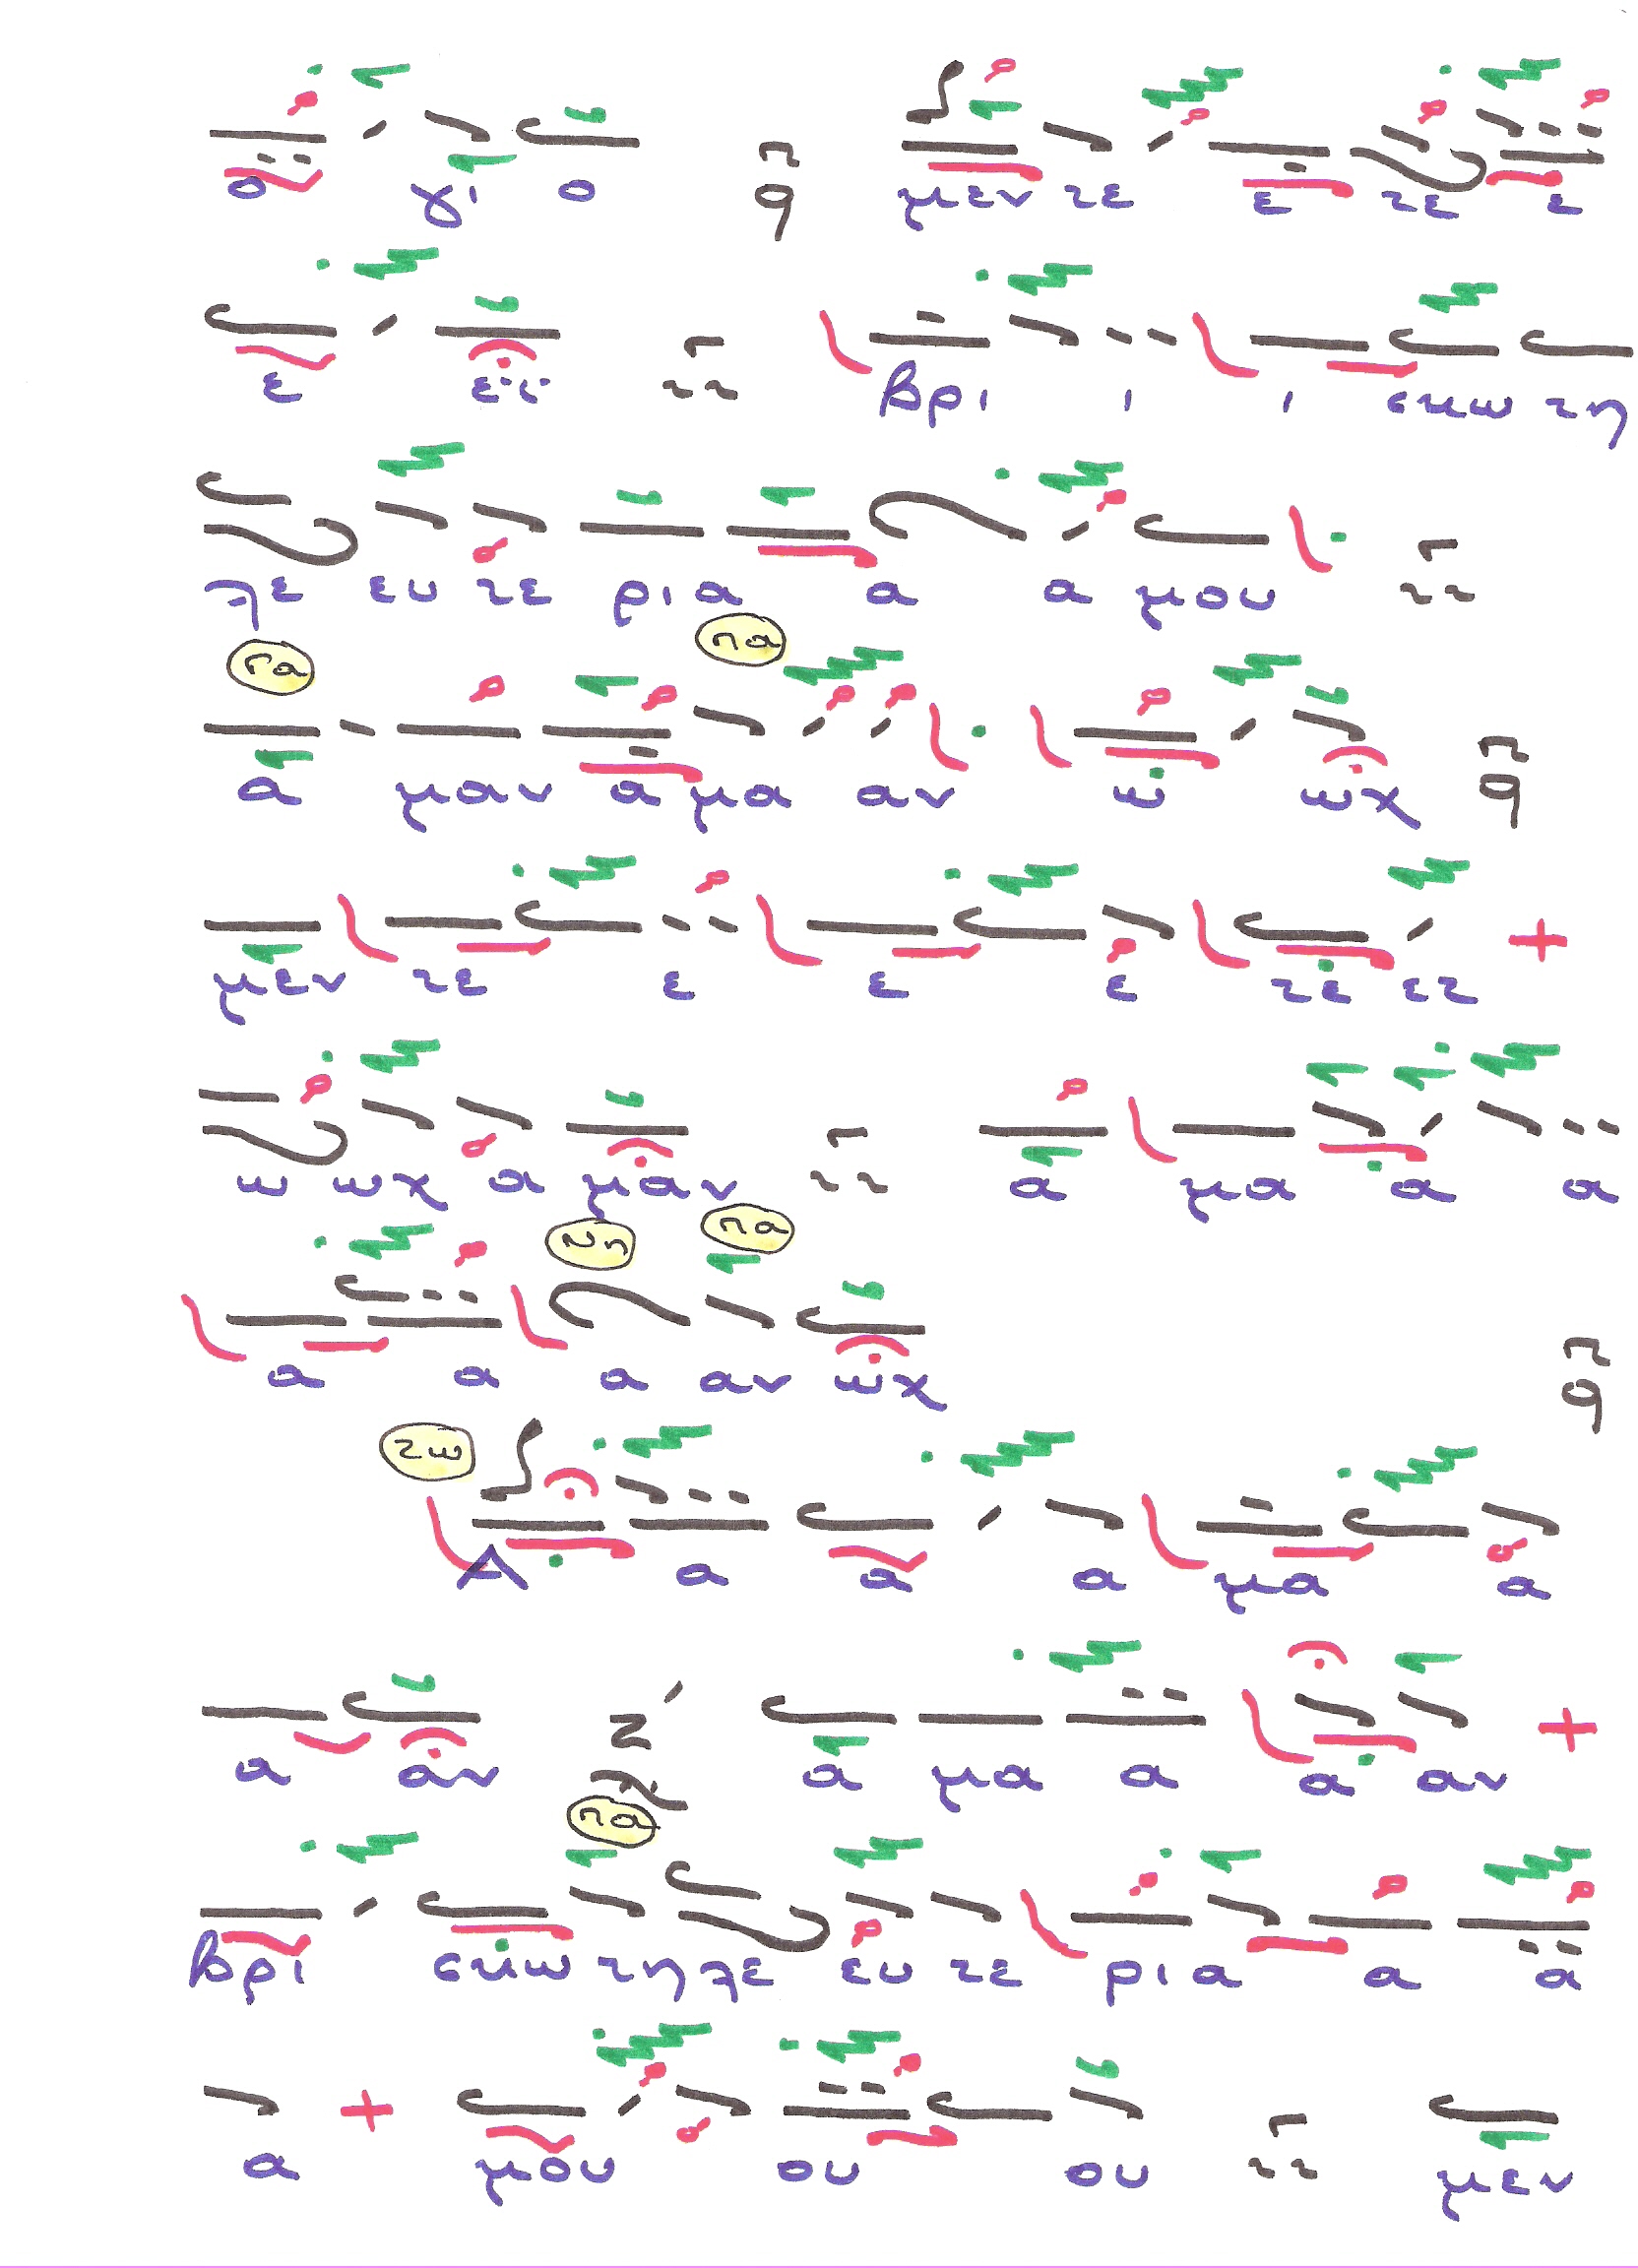 ο γι ο π q μεν τε ε τε ε
ε ει βρι ι ι σκω τη
λε ευ τε ρια α α μου
Γα πα
α μαν α μα αν ω ωχ π q
μεν τε ε ε ε τε ετ +
ω ωχ α μαν α μα α α
Ζη πα
α α α αν ωχ π q
Ζω
Α α α α μα α
α αν Ζ α μα α α αν +
πα
βρι σκω τη λε ευ τε ρια α α
α + μου ου ου μεν